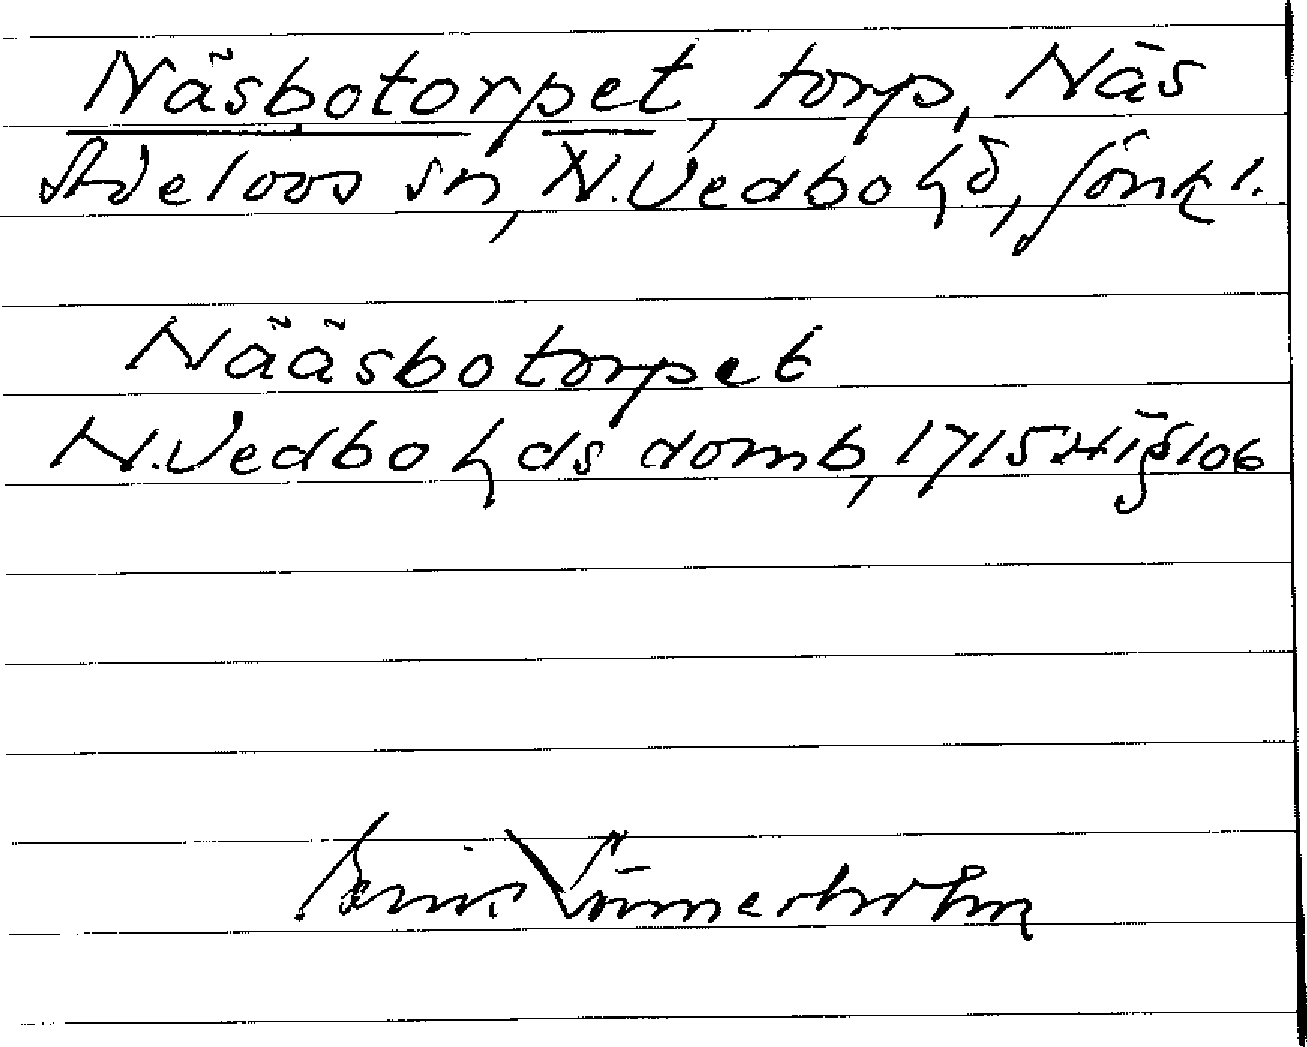 Näsbotorpet, torp, Näs
Adelövs sn, N. Vedbo hd, Jönk l.
Nääsbotorpet
N. Vedbo hds domb, 1715 Ht § 106